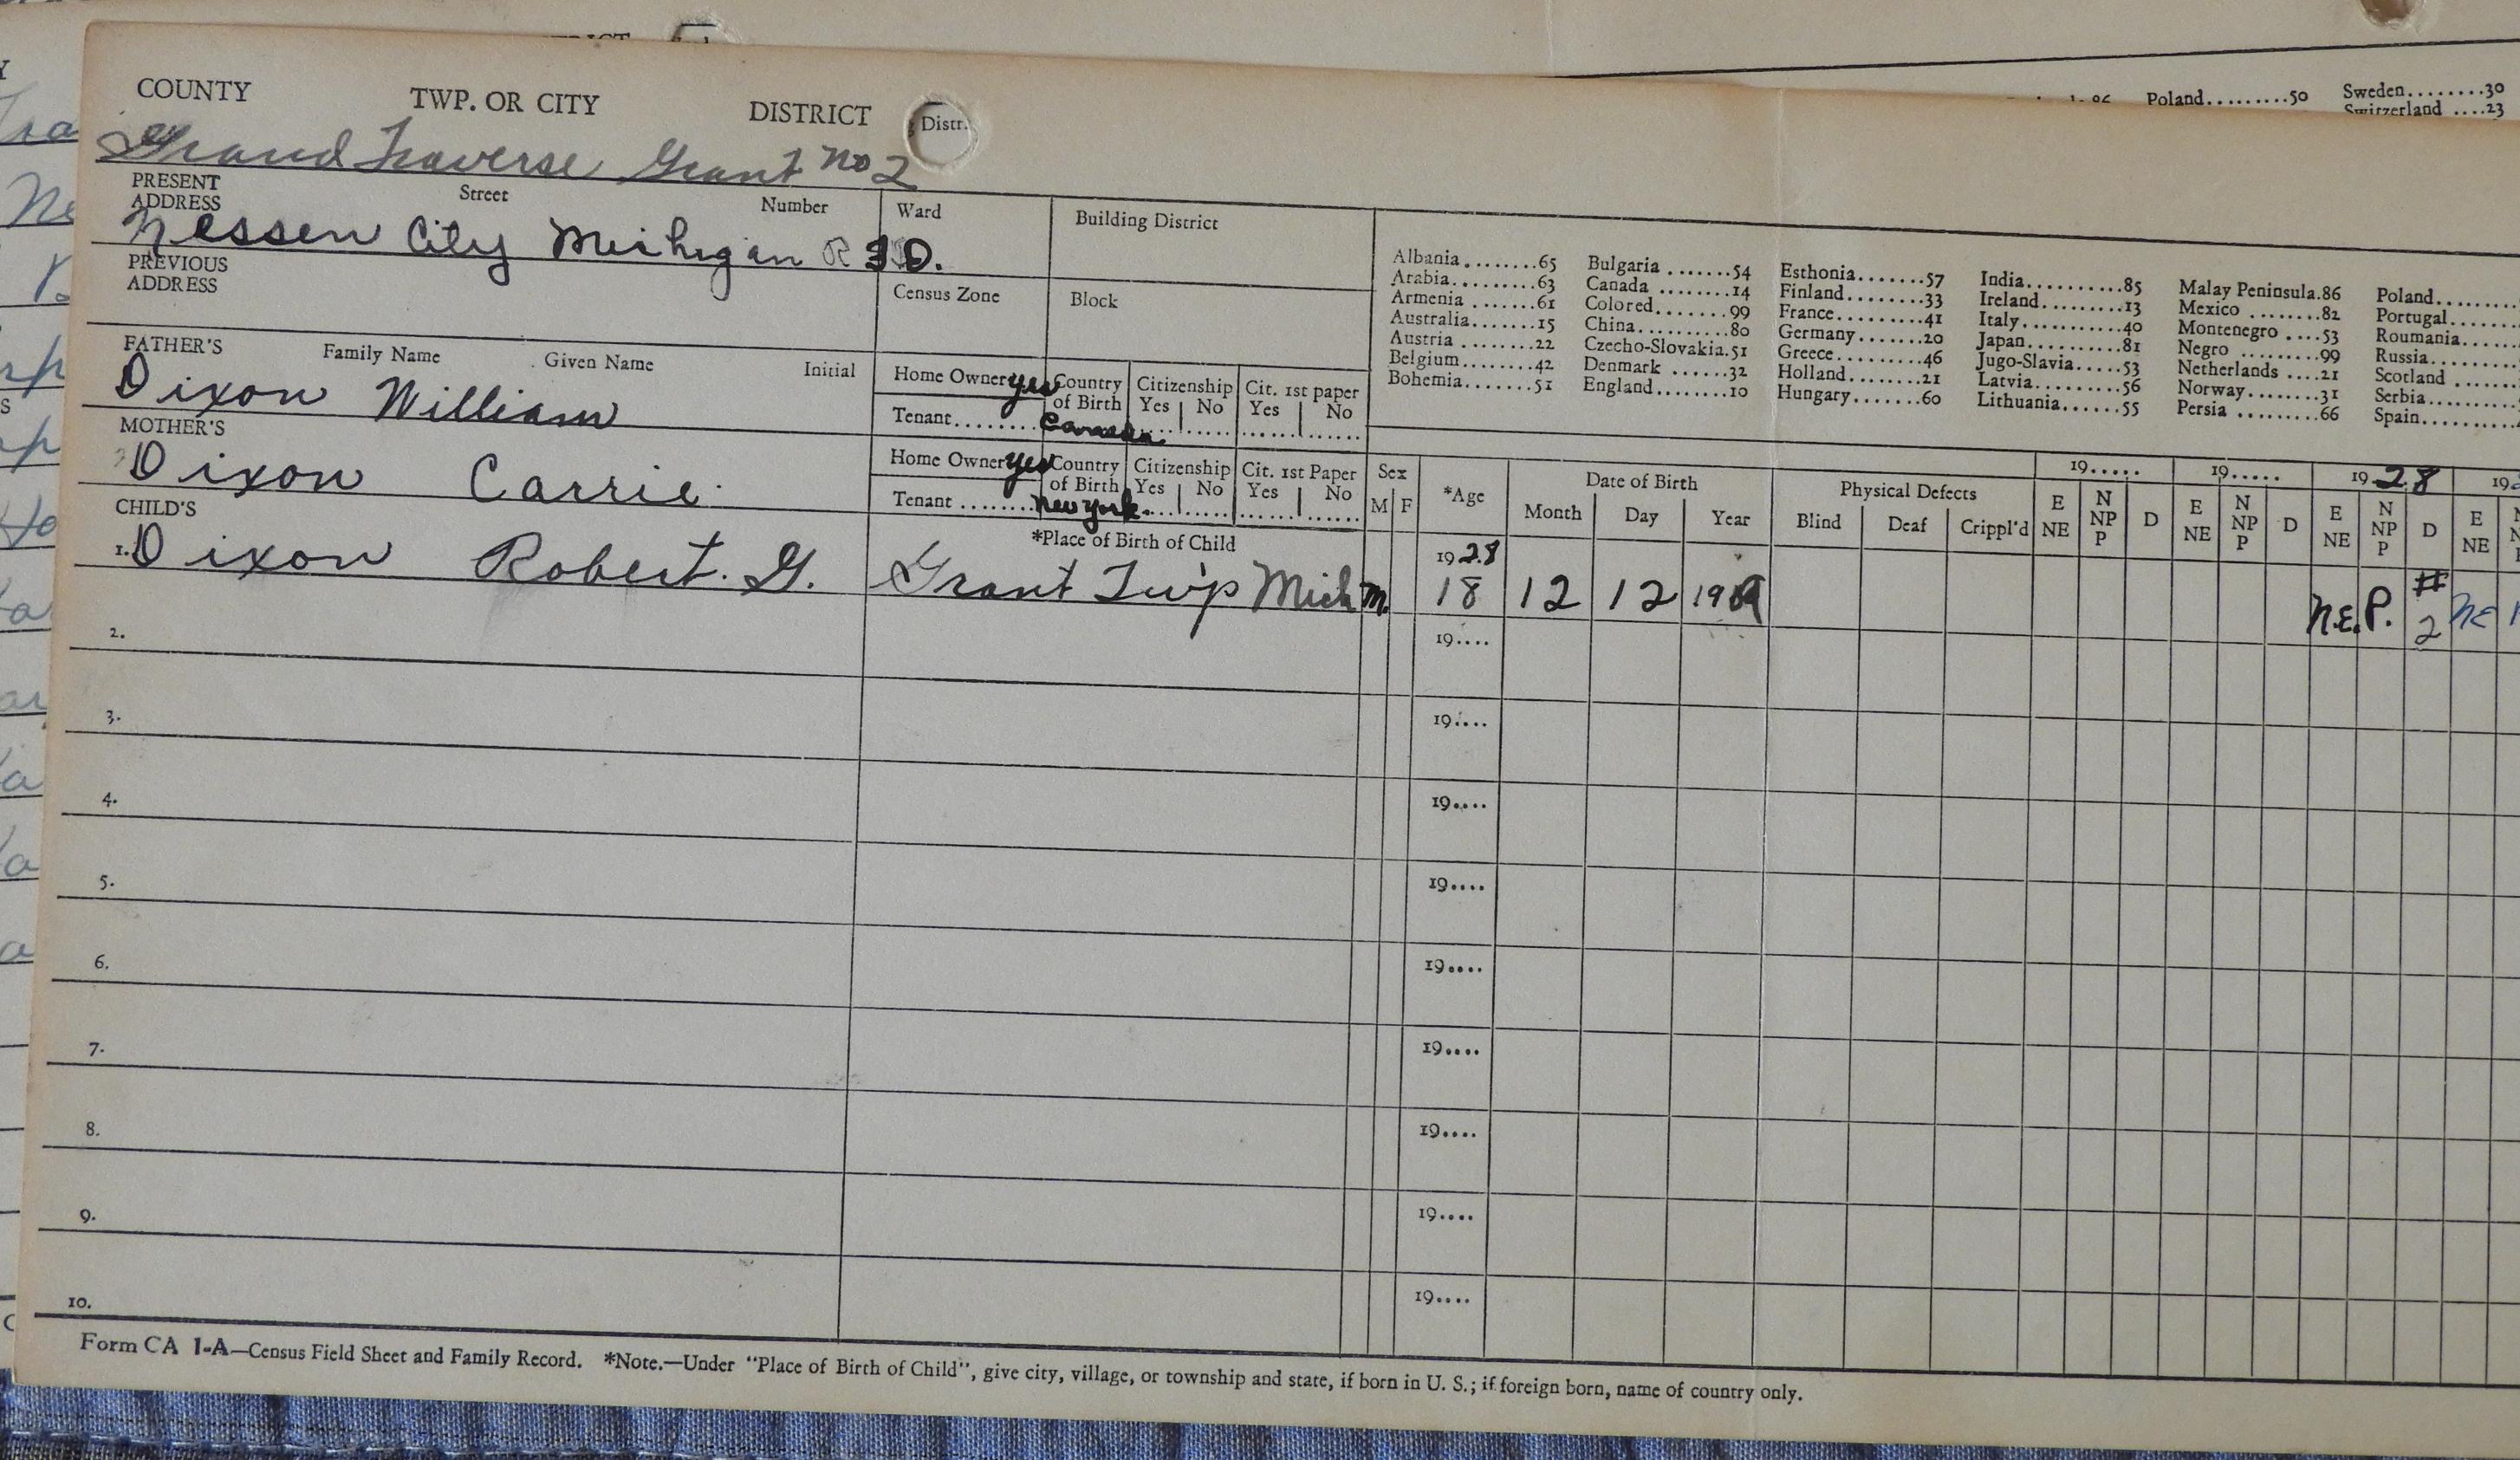 COUNTY TWP. OR CITY DISTRICT Distr.
Grand Traverse Grant No 2
PRESENT ADDRESS Street Number Ward Building District
Nessen City Michigan R
PREVIOUS ADDRESS Census Zone Block
FATHER'S Family Name Given Name Initial
Dixon William
Home Owner Yes Country of Birth Citizenship Yes No Cit. 1st paper Yes No
Tenant........ Canada
MOTHER'S
Dixon Carrie
Home Owner Yes Country of Birth Citizenship Yes No Cit. 1st Paper Yes No
Tenant ........ New York.
Poland.........50 Sweden........30
Switzerland ....23
Albania........65 Bulgaria .......54 Esthonia.......57 India..........85 Malay Peninsula.86 Poland
Arabia.........63 Canada ........14 Finland........33 Ireland.........13 Mexico ........82 Portugal
Armenia .......61 Colored........99 France.........41 Italy...........40 Montenegro ....53 Roumania
Australia.......15 China..........80 Germany.......20 Japan..........81 Negro .........99 Russia
Austria ........22 Czecho-Slovakia.51 Greece.........46 Jugo-Slavia.....53 Netherlands ....21 Scotland
Belgium........42 Denmark ......32 Holland........21 Latvia..........56 Norway........31 Serbia
Bohemia.......51 England........10 Hungary.......60 Lithuania......55 Persia .........66 Spain
Sex M F *Age Date of Birth Month Day Year Physical Defects Blind Deaf Crippl'd
19..... 19..... 1928 19
E NE N NP P D E NE N NP P D E NE N NP P D E NE
CHILD'S *Place of Birth of Child
1. Dixon Robert. G. Grant Twp Mich M. 1928 18 12 12 1909 N.E. P. # 2 NE
2. 19....
3. 19....
4. 19....
5. 19....
6. 19....
7. 19....
8. 19....
9. 19....
10. 19....
Form CA 1-A—Census Field Sheet and Family Record. *Note.—Under "Place of Birth of Child", give city, village, or township and state, if born in U. S.; if foreign born, name of country only.